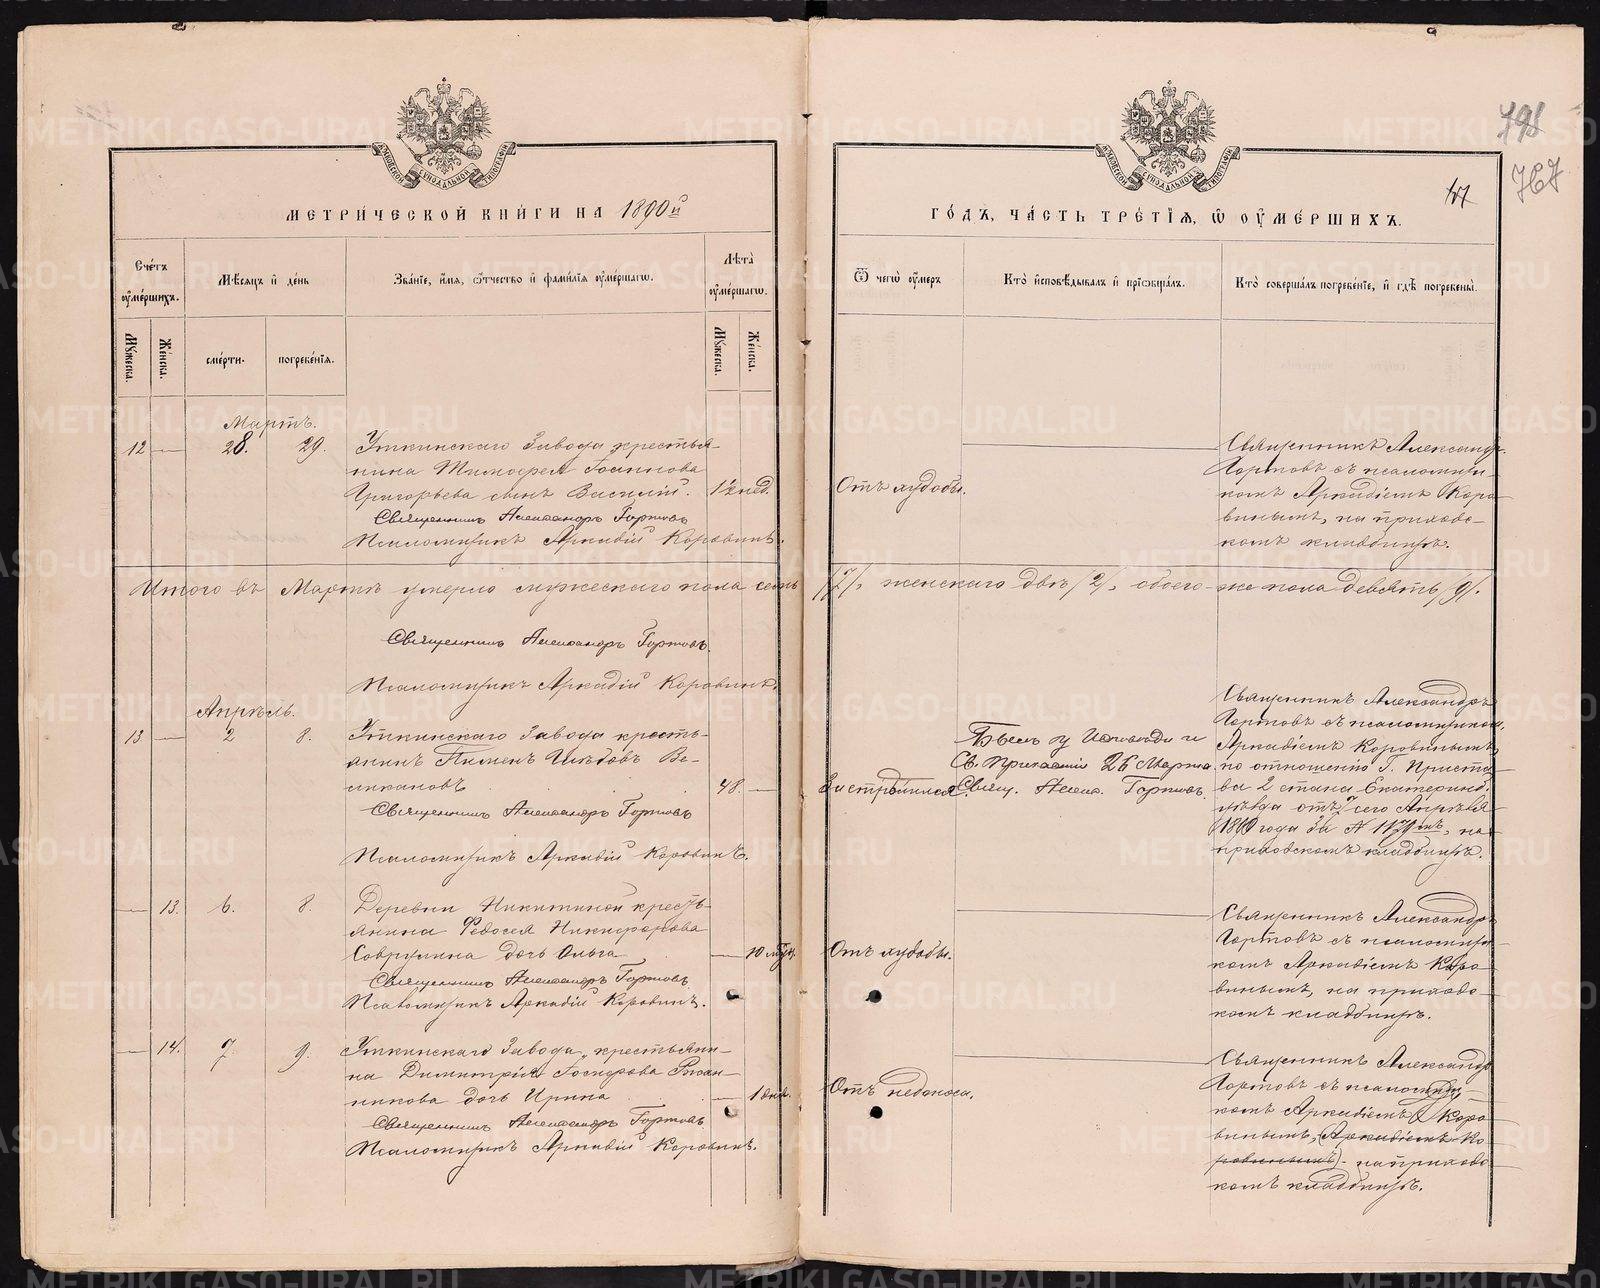 798
767
МЕТРИ́ЧЕСКОЙ КНИ́ГИ НА 1890й
ГО́ДЪ, ЧА́СТЬ ТРЕ́ТІѦ, Ѿ ОУ҆МЕ́РШИХЪ.
Сче́тъ оу҆ме́ршихъ.
Мѣ́сѧцъ и҆ де́нь
Зва́нїе, и҆́мѧ, ѻ҆́тчество и҆ фами́лїѧ оу҆ме́ршагѡ.
Лѣ́та оу҆ме́ршагѡ.
Ѿ чегѡ̀ оу҆́меръ
Кто̀ и҆сповѣ́дывалъ и҆ прїѡбща́лъ.
Кто̀ соверша́лъ погребе́нїе, и҆ гдѣ̀ погребены̀.
Мꙋ́жеска.
Же́нска.
сме́рти.
погребе́нїѧ.
Мꙋ́жеска.
Же́нска.
Мартъ.
12 — 28. 29. Уткинскаго Завода крестья-
нина Тимофея
Григорьева сынъ Василій.
Священникъ Александръ Гортовъ
Псаломщикъ Аркадій Коровинъ.
Отъ худобы.
Священникъ Александръ
Гортовъ съ псаломщи-
комъ Аркадіемъ Коро-
винымъ, на приходс-
комъ кладбищѣ.
Итого въ Мартѣ умерло мужескаго пола семь /7/, женскаго двѣ /2/, обоего же пола девять /9/.
Священникъ Александръ Гортовъ.
Псаломщикъ Аркадій Коровинъ.
Апрѣль.
13 — 2 8. Уткинскаго Завода кресть-
янинъ Пименъ Ве-
ликановъ 48. —
Священникъ Александръ Гортовъ
Псаломщикъ Аркадій Коровинъ.
Застрѣлился.
Былъ у Исповѣди и
Св. Причастія 26 Марта.
Свящ. Алекс. Гортовъ.
Священникъ Александръ
Гортовъ съ псаломщикомъ
Аркадіемъ Коровинымъ,
по отношенію Г. Приста-
ва 2 стана Екатеринб.
уѣзда отъ 7 сего Апрѣля
1890 года за № на
приходскомъ кладбищѣ.
— 13. 6. 8. Деревни Никитиной кресть-
янина Федосея Никифорова
Соврулина дочь Ольга — 10
Священникъ Александръ Гортовъ
Псаломщикъ Аркадій Коровинъ.
Отъ худобы.
Священникъ Александръ
Гортовъ съ псаломщи-
комъ Аркадіемъ Коро-
винымъ, на приходс-
комъ кладбищѣ.
— 14. 7. 9. Уткинскаго Завода, крестьяни-
на Димитрія
дочь Ирина — 1 дня.
Священникъ Александръ Гортовъ
Псаломщикъ Аркадій Коровинъ.
Отъ недоноса.
Священникъ Александръ
Гортовъ съ псаломщи-
комъ Аркадіемъ Коро-
винымъ, (Аркадіемъ Ко-
ровинымъ) на приходс-
комъ кладбищѣ.
METRIKI.GASO-URAL.RU